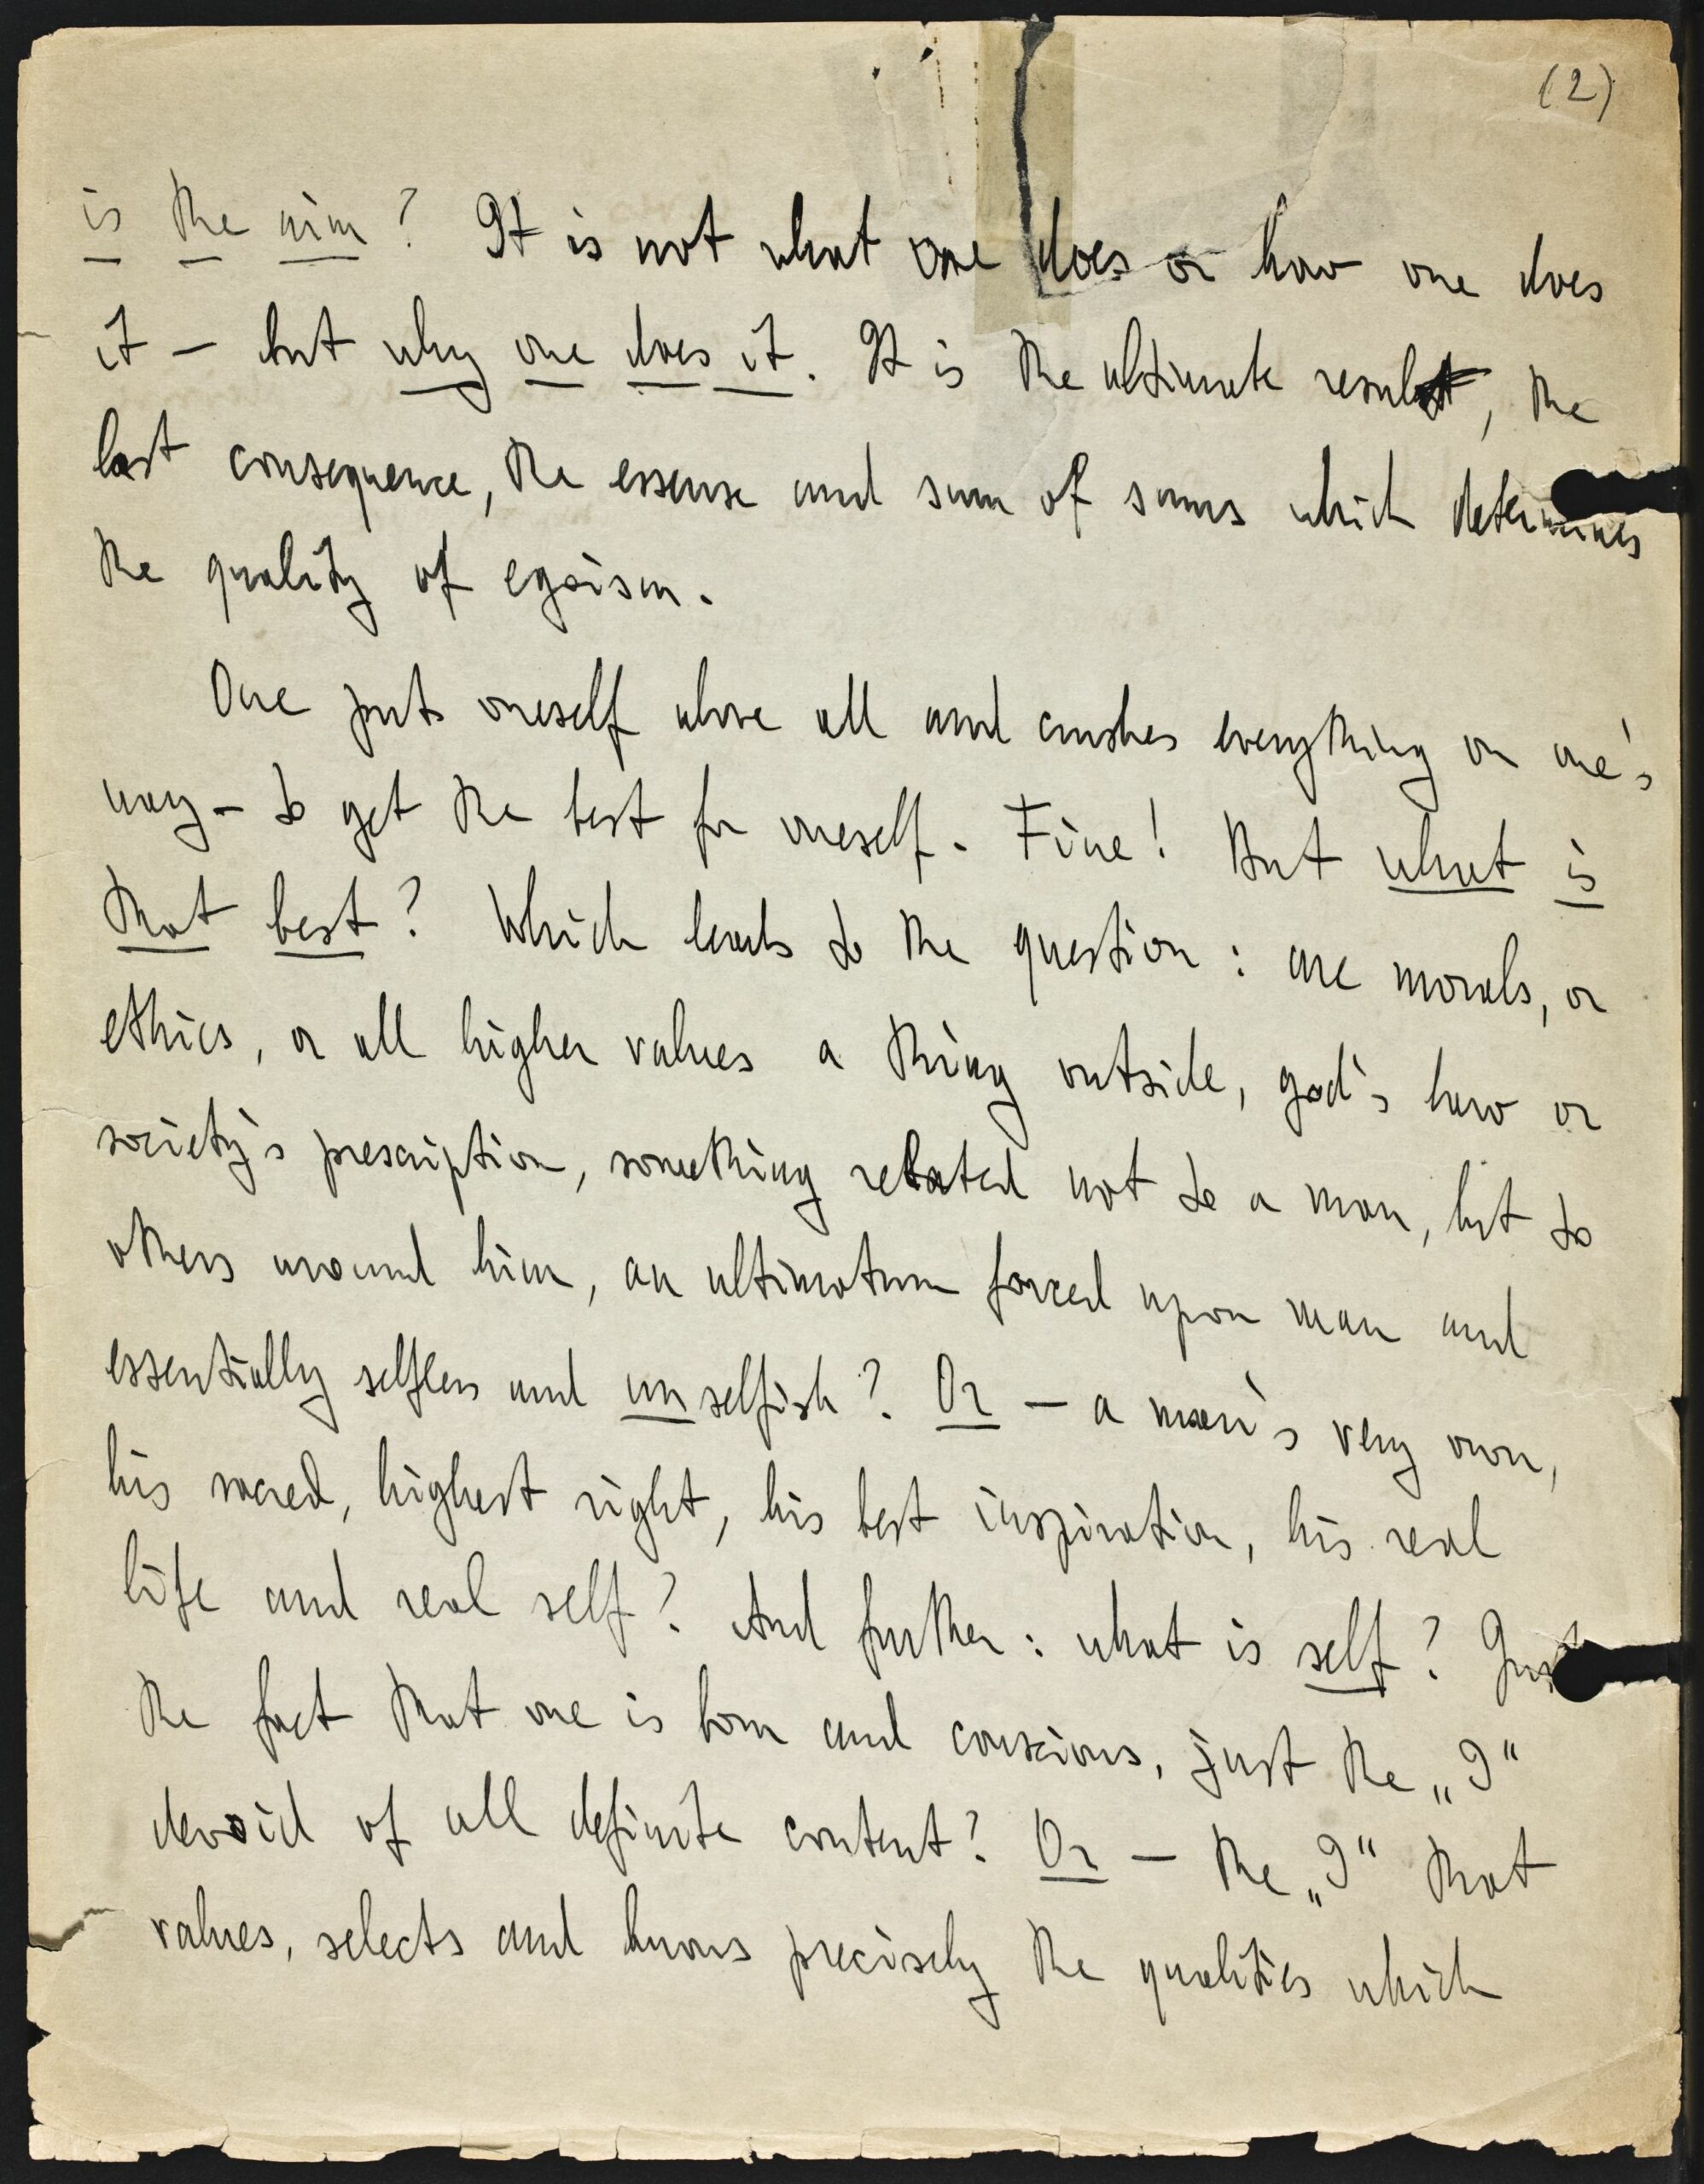 (2)
is the aim? It is not what one does or how one does
it – but why one does it. It is the ultimate result, the
last consequence, the essense and sum of sums which determines
the quality of egoism.
One puts oneself above all and crushes everything on one's
way – to get the best for oneself. Fine! But what is
that best? Which leads to the question: are morals, or
ethics, or all higher values a thing outside, god's law or
society's prescription, something related not to a man, but to
others around him, an ultimatum forced upon man and
essentially selfless and unselfish? Or – a man's very own,
his sacred, highest right, his best inspiration, his real
life and real self? And further: what is self? Just
the fact that one is born and conscious, just the „I“
devoid of all definite content? Or – the „I“ that
values, selects and knows precisely the qualities which